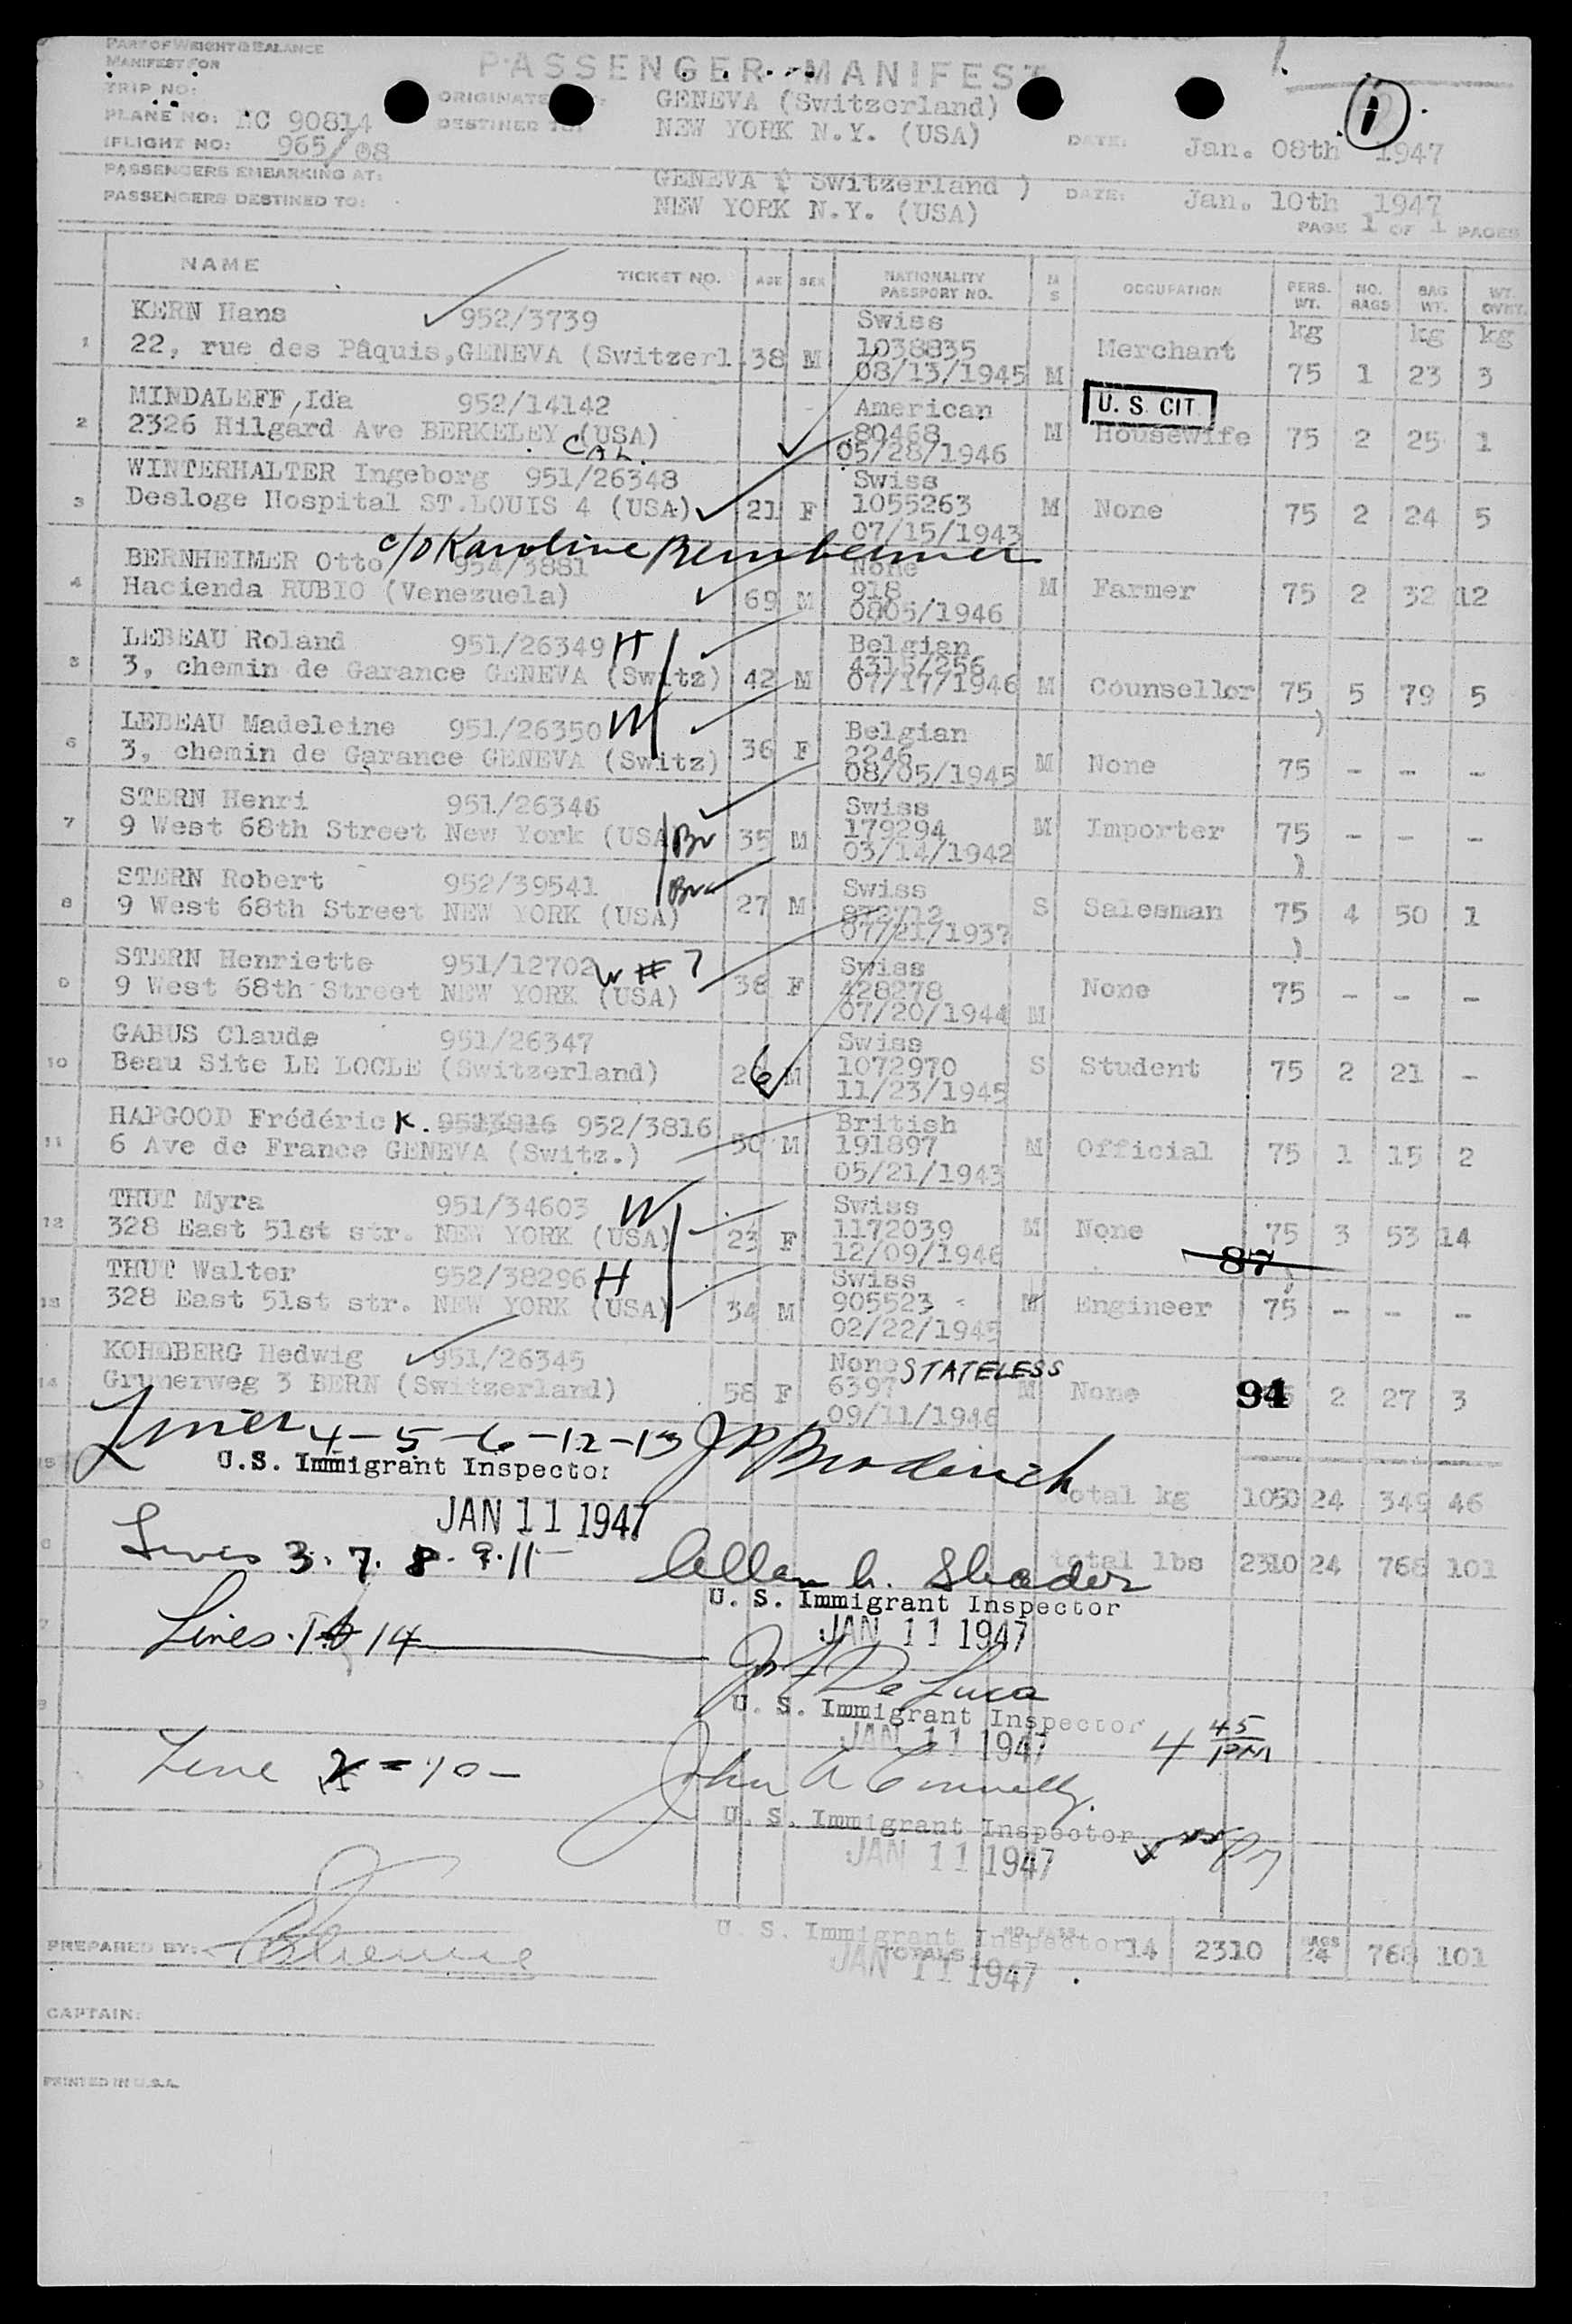 PART OF WEIGHT & BALANCE
MANIFEST FOR
PASSENGER MANIFEST
TRIP NO:
PLANE NO: NC 90814
FLIGHT NO: 965/08
ORIGINATES GENEVA (Switzerland)
DESTINED TO: NEW YORK N.Y. (USA) DATE: Jan. 08th 1947
1
PASSENGERS EMBARKING AT: GENEVA ( Switzerland )
PASSENGERS DESTINED TO: NEW YORK N.Y. (USA) DATE: Jan. 10th 1947
PAGE 1 OF 1 PAGES
NAME TICKET NO. AGE SEX NATIONALITY PASSPORT NO. M S OCCUPATION PERS. WT. NO. BAGS BAG WT. WT. OVWT.
kg kg kg
KERN Hans 952/3739 Swiss
1 22, rue des Pâquis,GENEVA (Switzerl. 38 M 1038835 Merchant
08/13/1945 M 75 1 23 3
MINDALEFF,Ida 952/14142 American U. S. CIT
2 2326 Hilgard Ave BERKELEY (USA) 80468 M Housewife 75 2 25 1
CAL. 05/28/1946
WINTERHALTER Ingeborg 951/26348 Swiss
3 Desloge Hospital ST.LOUIS 4 (USA) 21 F 1055263 M None 75 2 24 5
07/15/1943
c/o Karoline Bernheimer
BERNHEIMER Otto 954/3881 None
4 Hacienda RUBIO (Venezuela) 69 M 918 M Farmer 75 2 32 12
0805/1946
LEBEAU Roland 951/26349 H Belgian
5 3, chemin de Garance GENEVA (Switz) 42 M 4315/256
07/17/1946 M Counsellor 75 5 79 5
LEBEAU Madeleine 951/26350 W Belgian
6 3, chemin de Garance GENEVA (Switz) 36 F 2246
08/05/1945 M None 75 - - -
STERN Henri 951/26346 Swiss
7 9 West 68th Street New York (USA Br 35 M 179294 M Importer 75 - - -
03/14/1942
STERN Robert 952/39541 Br Swiss
8 9 West 68th Street NEW YORK (USA) 27 M 872712 S Salesman 75 4 50 1
07/21/1937
STERN Henriette 951/12702 W # 7 Swiss
9 9 West 68th Street NEW YORK (USA) 38 F 428278 None 75 - - -
07/20/1944 M
GABUS Claude 951/26347 Swiss
10 Beau Site LE LOCLE (Switzerland) 26 M 1072970 S Student 75 2 21 -
11/23/1945
HAPGOOD Frédéric K. 9523816 952/3816 British
11 6 Ave de France GENEVA (Switz.) 50 M 191897 M Official 75 1 15 2
05/21/1943
THUT Myra 951/34603 W Swiss
12 328 East 51st str. NEW YORK (USA) 23 F 1172039 M None 75 3 53 14
12/09/1946 87
THUT Walter 952/38296 H Swiss
13 328 East 51st str. NEW YORK (USA) 34 M 905523 M Engineer 75 - - -
02/22/1945
KOHDBERG Hedwig 951/26345 None STATELESS
14 Grunerweg 3 BERN (Switzerland) 58 F 6397 M None 94 2 27 3
09/11/1946
Lines 4-5-6-12-13 J P Broderick
U.S. Immigrant Inspector
total kg 1050 24 349 46
JAN 11 1947
Lines 3. 7. 8. 9. 11 Allen h. Shader
total lbs 2310 24 768 101
U. S. Immigrant Inspector
JAN 11 1947
Lines 1 & 14
De Luca
U. S. Immigrant Inspector
JAN 11 1947 4 45 PM
Line 2 - 10 - John A Connelly.
U. S. Immigrant Inspector
JAN 11 1947
U. S. Immigrant Inspector
PREPARED BY: TOTALS NO. PASS. 14 2310 BAGS 24 768 101
JAN 11 1947
CAPTAIN:
PRINTED IN U.S.A.